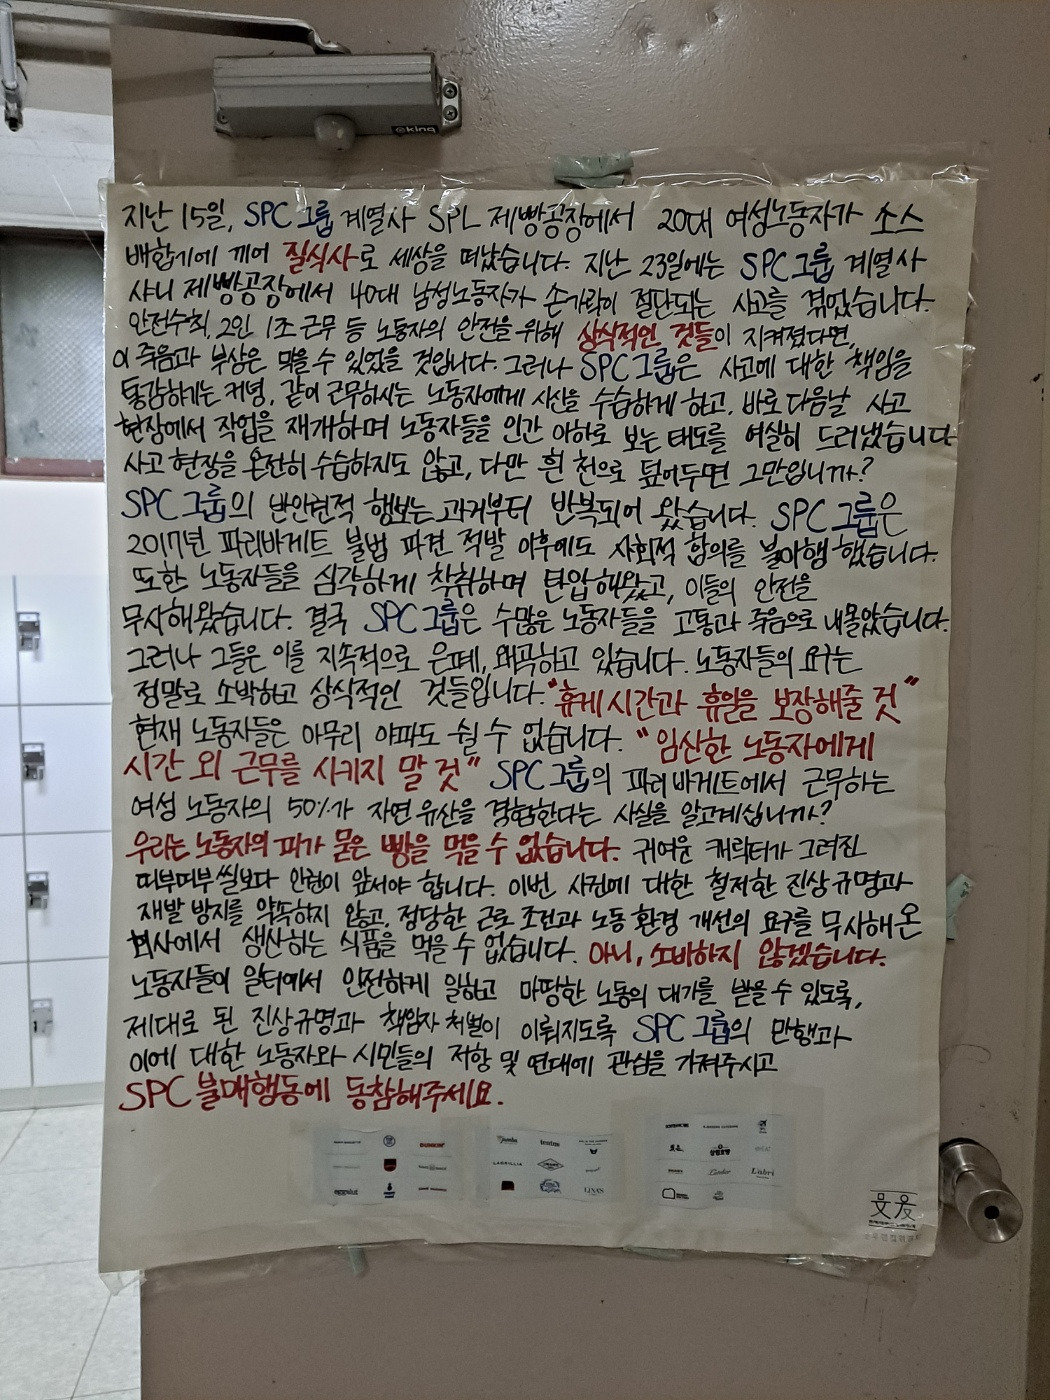 king
지난 15일, SPC그룹 계열사 SPL 제빵공장에서 20대 여성노동자가 소스
배합기에 끼어 질식사로 세상을 떠났습니다. 지난 23일에는 SPC그룹 계열사
샤니 제빵공장에서 40대 남성노동자가 손가락이 절단되는 사고를 겪었습니다.
안전수칙, 2인 1조 근무 등 노동자의 안전을 위해 상식적인 것들이 지켜졌다면,
이 죽음과 부상은 막을 수 있었을 것입니다. 그러나 SPC그룹은 사고에 대한 책임을
통감하기는 커녕, 같이 근무하시는 노동자에게 시신을 수습하게 하고, 바로 다음날 사고
현장에서 작업을 재개하며 노동자들을 인간 이하로 보는 태도를 여실히 드러냈습니다
사고 현장을 온전히 수습하지도 않고, 다만 흰 천으로 덮어두면 그만입니까?
SPC그룹의 반인권적 행보는 과거부터 반복되어 왔습니다. SPC그룹은
2017년 파리바게트 불법 파견 적발 이후에도 사회적 합의를 불이행했습니다.
또한 노동자들을 심각하게 착취하며 탄압해왔고, 이들의 안전을
무시해왔습니다. 결국 SPC그룹은 수많은 노동자들을 고통과 죽음으로 내몰았습니다.
그러나 그들은 이를 지속적으로 은폐, 왜곡하고 있습니다. 노동자들의 요구는
정말로 소박하고 상식적인 것들입니다. "휴게시간과 휴일을 보장해줄 것"
현재 노동자들은 아무리 아파도 쉴 수 없습니다. "임산한 노동자에게
시간 외 근무를 시키지 말 것" SPC그룹의 파리바게트에서 근무하는
여성 노동자의 50%가 자연유산을 경험한다는 사실을 알고계십니까?
우리는 노동자의 피가 묻은 빵을 먹을 수 없습니다. 귀여운 캐릭터가 그려진
띠부띠부씰보다 안전이 앞서야 합니다. 이번 사건에 대한 철저한 진상규명과
재발 방지를 약속하지 않고, 정당한 근로 조건과 노동 환경 개선의 요구를 무시해온
회사에서 생산하는 식품을 먹을 수 없습니다. 아니, 소비하지 않겠습니다.
노동자들이 일터에서 안전하게 일하고 마땅한 노동의 대가를 받을 수 있도록,
제대로 된 진상규명과 책임자 처벌이 이뤄지도록 SPC그룹의 만행과
이에 대한 노동자와 시민들의 저항 및 연대에 관심을 가져주시고
SPC 불매행동에 동참해주세요.
DUNKIN' Jamba LAGRILLIA LINA'S 삼립호빵 L'atri